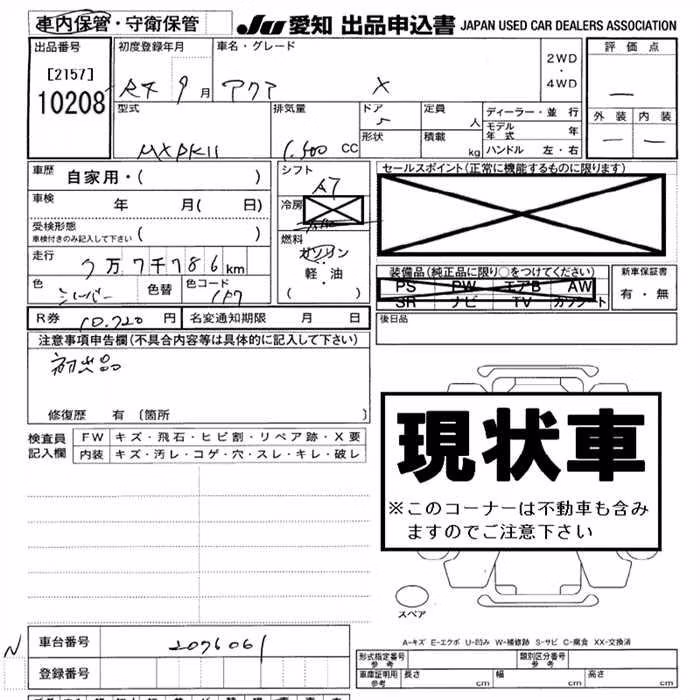 車内保管・守衛保管
JU 愛知 出品申込書 JAPAN USED CAR DEALERS ASSOCIATION
出品番号 初度登録年月 車名・グレード 2WD・4WD 評価点
[2157]
10208
9月 アクア X
外装 内装
型式 排気量 ドア 定員 人 ディーラー・並行
MXPK11 1.500 CC 5 形状 積載 kg モデル年式 年
ハンドル 左・右
車歴 自家用・( ) シフト A7 セールスポイント(正常に機能するものに限ります)
車検 年 月( 日) 冷房
受検形態
車検付きのみ記入して下さい ( )
燃料
ガソリン・軽・油
( )
走行 7万7千786km
装備品(純正品に限り○をつけてください) 新車保証書
PS PW エアB AW 有・無
SR ナビ TV カワシート
色 シルバー 色替 色コード 1F7
後日品
R券 10.720 円 名変通知期限 月 日
注意事項申告欄(不具合内容等は具体的に記入して下さい)
初出品
修復歴 有 〔箇所 〕
検査員記入欄 FW キズ・飛石・ヒビ割・リペア跡・X要
内装 キズ・汚レ・コゲ・穴・スレ・キレ・破レ
現状車
※このコーナーは不動車も含み
ますのでご注意下さい
スペア
A-キズ E-エクボ U-凹み W-補修跡 S-サビ C-腐食 XX-交換済
N 車台番号 2076061
登録番号
形式指定番号 参考 類別区分番号 参考
車庫証明用 参考 長さ cm 幅 cm 高さ cm